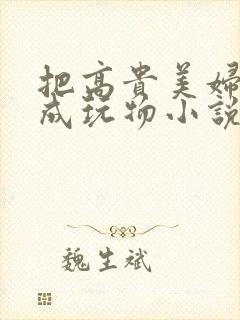 把高貴美婦
成玩物小說
魏生斌